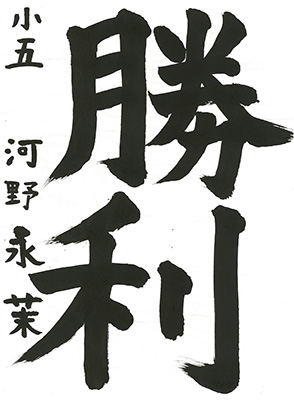 勝利
小五 河野永茉